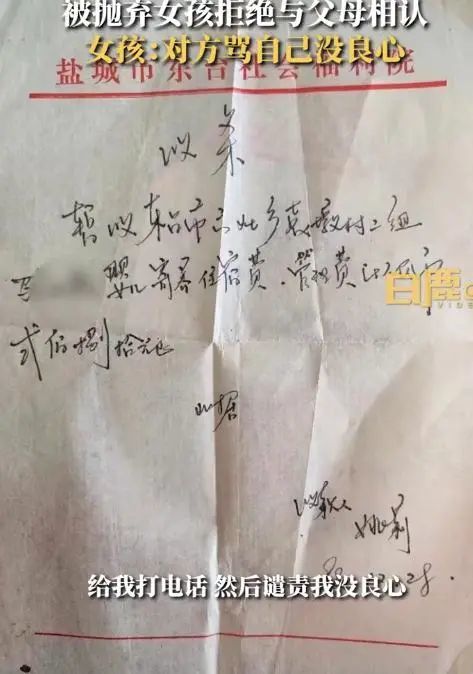 被抛弃女孩拒绝与父母相认
女孩:对方骂自己没良心
盐城市东台社会福利院
收条
暂收东台市三灶乡村二组
婴儿寄养住宿费、管理费
白鹿
VIDE
贰佰捌拾元正
此据
收款人
姚莉
给我打电话 然后谴责我没良心